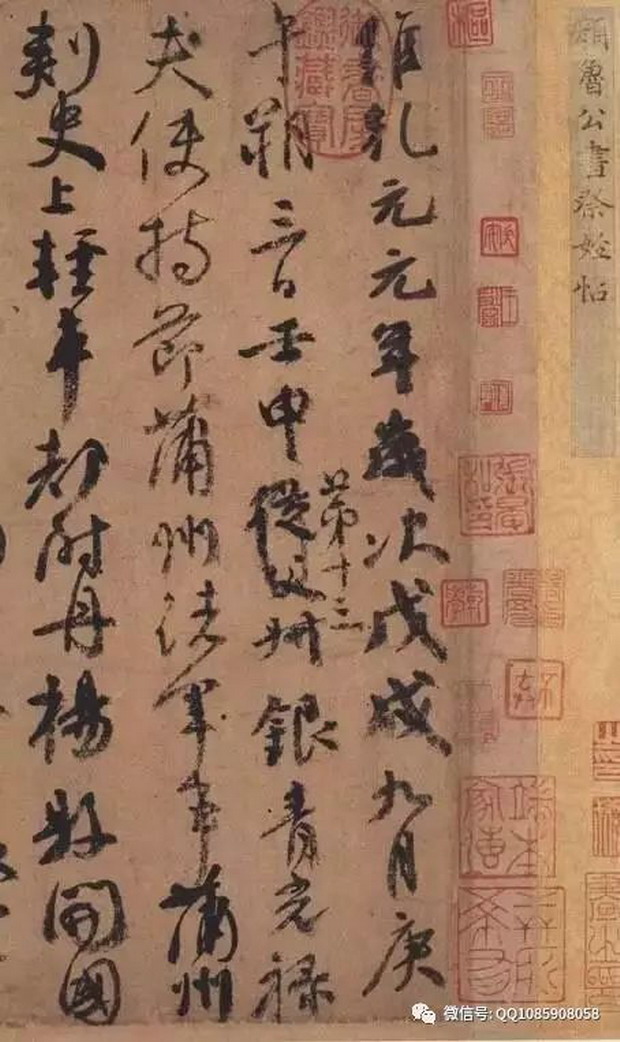 顔魯公書祭姪帖
維乾元元年歲次戊戌九月庚
午朔三日壬申第十三從父銀青光禄
夫使持節蒲州諸軍事蒲州
刺史上輕車都尉丹楊縣開國
御書房鑑藏寶
微信号: QQ1085908058